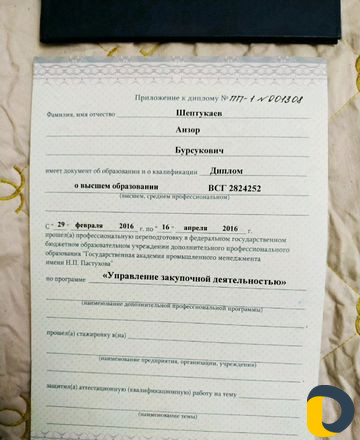 Приложение к диплому № ПП-1 № 001808
Фамилия, имя отчество Шептукаев
Анзор
Бурсукович
имеет документ об образовании и о квалификации Диплом
о высшем образовании ВСГ 2824252
(высшем, среднем профессиональном)
С "29" февраля 2016 г. по "16" апреля 2016 г.
прошел(а) профессиональную переподготовку в федеральном государственном
бюджетном образовательном учреждении дополнительного профессионального
образования "Государственная академия промышленного менеджмента
имени Н.П. Пастухова"
по программе «Управление закупочной деятельностью»
(наименование дополнительной профессиональной программы)
прошел(а) стажировку в(на)
(наименование предприятия, организации, учреждения)
защитил(а) аттестационную (квалификационную) работу на тему
(наименование темы)